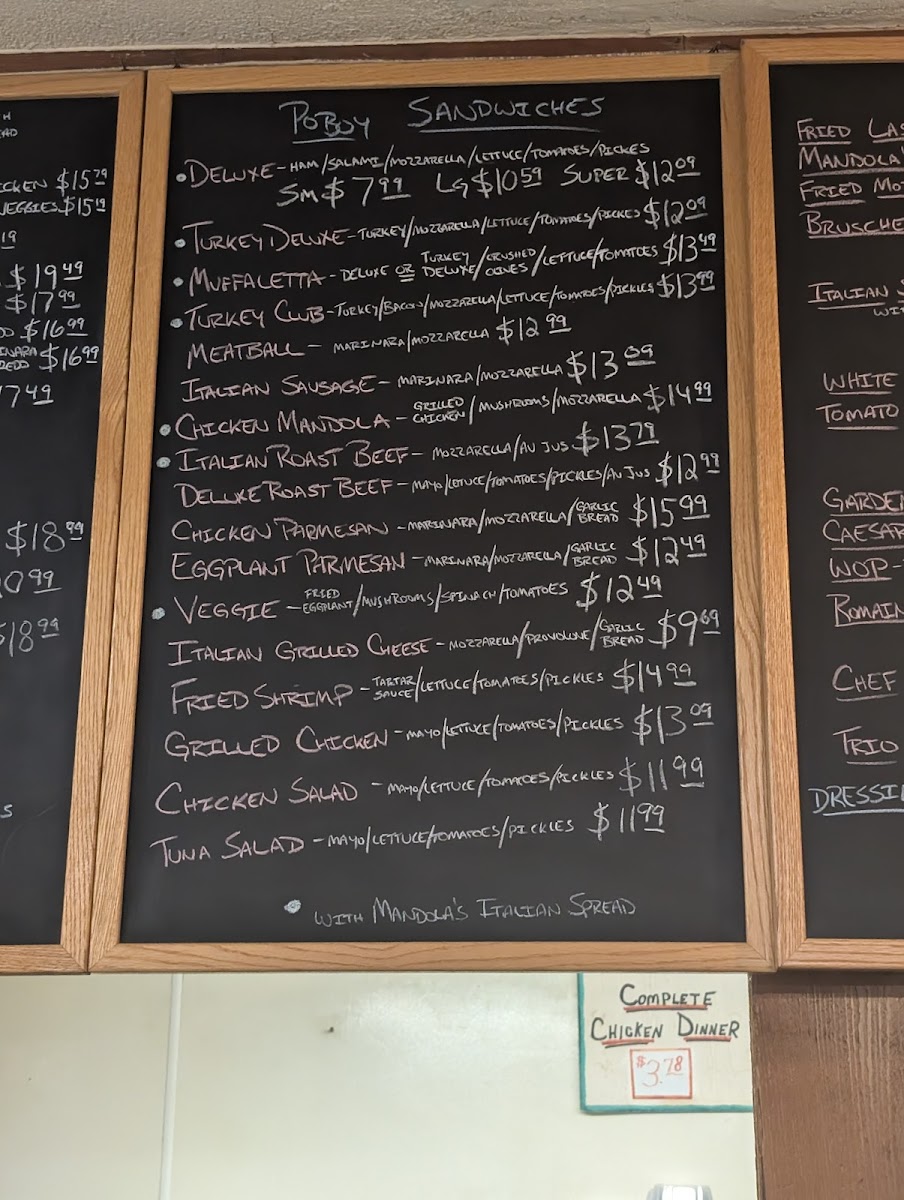 H
CKEN $15 79
VEGGIES $15 19
19
$19 49
$17 99
$16 99
INARA
$16 99
7 49
$18 99
0 99
$18 99
S
POBOY SANDWICHES
• DELUXE - HAM/SALAMI/MOZZARELLA/LETTUCE/TOMATOES/PICKES
SM $7 99 LG $10 59 SUPER $12 09
• TURKEY DELUXE - TURKEY/MOZZARELLA/LETTUCE/TOMATOES/PICKES $12 09
• MUFFALETTA - DELUXE OR TURKEY DELUXE/CRUSHED OLIVES/LETTUCE/TOMATOES $13 49
• TURKEY CLUB - TURKEY/BACON/MOZZARELLA/LETTUCE/TOMATOES/PICKLES $13 99
MEATBALL - MARINARA/MOZZARELLA $12 99
ITALIAN SAUSAGE - MARINARA/MOZZARELLA $13 09
• CHICKEN MANDOLA - GRILLED CHICKEN/MUSHROOMS/MOZZARELLA $14 99
• ITALIAN ROAST BEEF - MOZZARELLA/AU JUS $13 79
DELUXE ROAST BEEF - MAYO/LETTUCE/TOMATOES/PICKLES/AU JUS $12 99
CHICKEN PARMESAN - MARINARA/MOZZARELLA/GARLIC BREAD $15 99
EGGPLANT PARMESAN - MARINARA/MOZZARELLA/GARLIC BREAD $12 49
• VEGGIE - FRIED EGGPLANT/MUSHROOMS/SPINACH/TOMATOES $12 49
ITALIAN GRILLED CHEESE - MOZZARELLA/PROVOLONE/GARLIC BREAD $9 69
FRIED SHRIMP - TARTAR SAUCE/LETTUCE/TOMATOES/PICKLES $14 99
GRILLED CHICKEN - MAYO/LETTUCE/TOMATOES/PICKLES $13 09
CHICKEN SALAD - MAYO/LETTUCE/TOMATOES/PICKLES $11 99
TUNA SALAD - MAYO/LETTUCE/TOMATOES/PICKLES $11 99
• WITH MANDOLA'S ITALIAN SPREAD
FRIED LAS
MANDOLA'
FRIED MO
BRUSCHE
ITALIAN S
WIT
WHITE
TOMATO
GARDEN
CAESAR
WOP -
ROMAIN
CHEF
TRIO
DRESSI
COMPLETE
CHICKEN DINNER
$3.78